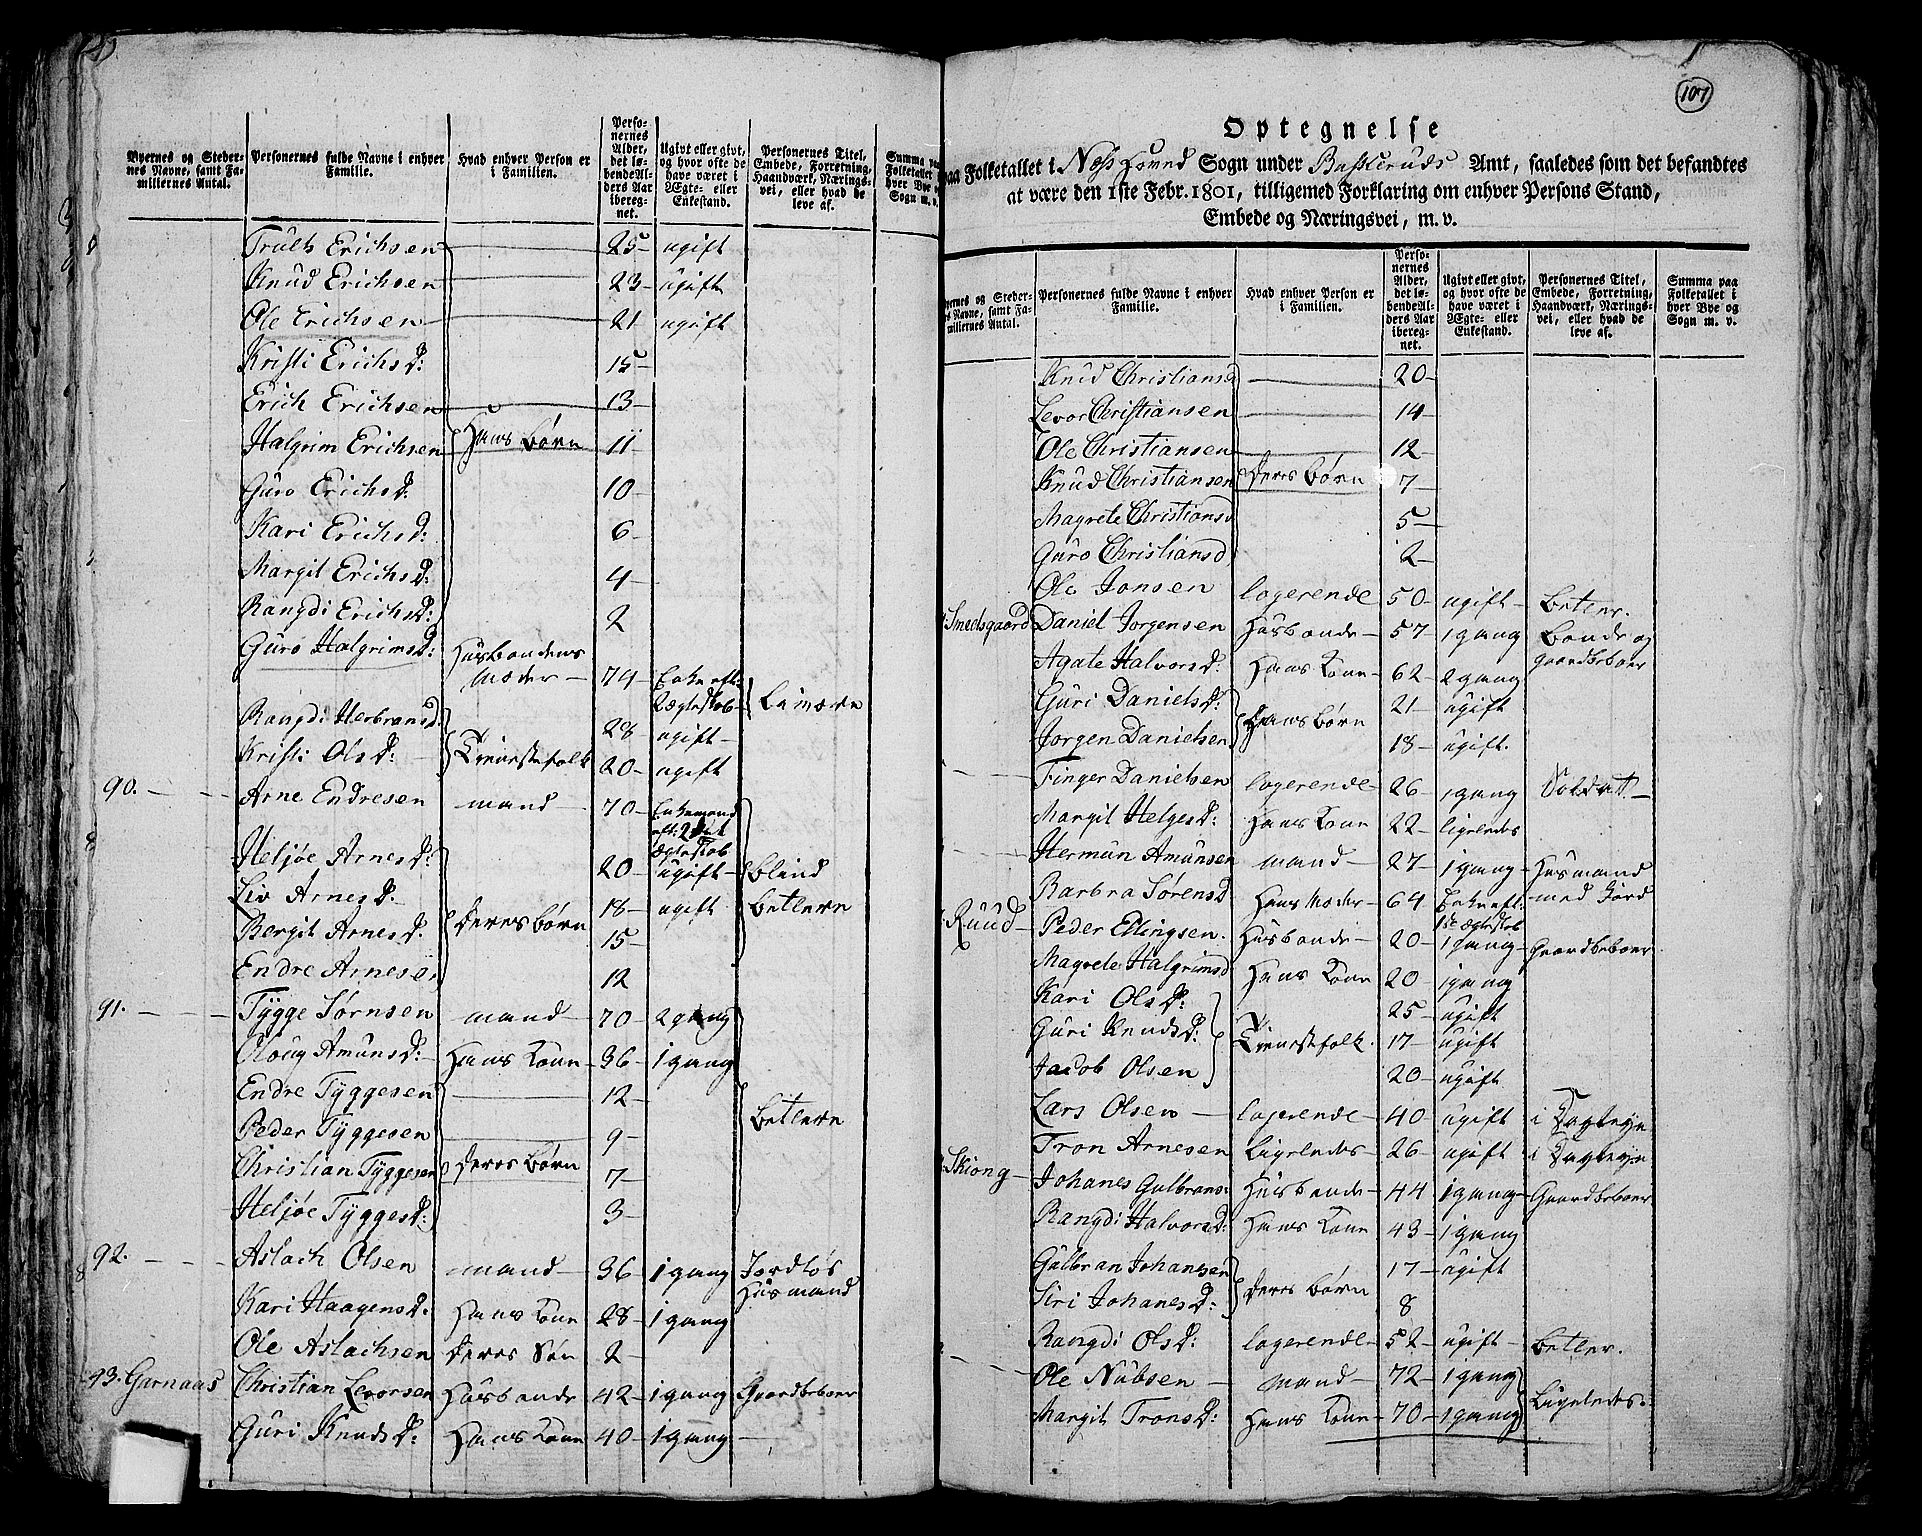 Byernes og Steder-
nes Navne, samt Fa-
miliernes Antal.
Personernes fulde Navne i enhver
Familie.
Hvad enhver Person er
i Familien.
Perso-
nernes
Alder,
det lø-
bende Al-
ders Aar
ibereg-
net.
Ugivt eller givt,
og hvor ofte de
have været i
Ægte- eller
Enkestand.
Personernes Titel,
Embede, Forretning,
Haandværk, Nærings-
vei, eller hvad de
leve af.
Summa paa
Folketallet i
hver Bye og
Sogn m. v.
Truls Erichsen 25 ugift
Knud Erichsen 23 ugift
Ole Erichsen 21 ugift
Kristi Erichsd: 15
Erich Erichsen 13
Halgrim Erichsen Hans Børn 11
Guro Erichsd: 10
Kari Erichsd: 6
Margit Erichsd: 4
Rangdi Erichsd: 2
Guro Halgrimsd: Husbondens
Moder 74 Enke eft:
Ægteskab
Rangdi Herbransd: 28 ugift
Kristi Olsd: Tienestefolk 20 ugift
90. Arne Endresen mand 70 Enkemand
eft: Ægteskab
Heljøe Arnesd: 20 ugift blind
Liv Arnesd. 18 ugift betlere
Bergit Arnesd. Deres børn 15
Endre Arnesen 12
91. Tÿgge Sørnsen mand 70 2 gang
Aloug Amunsd: Hans Kone 36 1 gang
Endre Tÿggesen 12
betlere
Peder Tÿggesen 9
Christian Tÿggesen Deres børn 7
Heljøe Tÿggesd: 3
92. Aslach Olsen mand 36 1 gang Jordløs
Husmand
Kari Haagensd: Hans Kone 28 1 gang
Ole Aslachsen Deres Søn 2
93. Garnaas Christian Levorsen Husbonde 42 1 gang Gaardbeboer
Guri Knudsd: Hans Kone 40 1 gang
107
Optegnelse
paa Folketallet i Næss Hoved Sogn under Buskeruds Amt, saaledes som det befandtes
at være den 1ste Febr. 1801, tilligemed Forklaring om enhver Persons Stand,
Embede og Næringsvei, m. v.
Byernes og Steder-
nes Navne, samt Fa-
miliernes Antal.
Personernes fulde Navne i enhver
Familie.
Hvad enhver Person er
i Familien.
Perso-
nernes
Alder,
det lø-
bende Al-
ders Aar
ibereg-
net.
Ugivt eller givt,
og hvor ofte de
have været i
Ægte- eller
Enkestand.
Personernes Titel,
Embede, Forretning,
Haandværk, Nærings-
vei, eller hvad de
leve af.
Summa paa
Folketallet i
hver Bye og
Sogn m. v.
Knud Christiansen 20
Levor Christiansen 14
Ole Christiansen 12
Knud Christiansen Deres børn 7
Magrete Christiansd 5
Guro Christiansd 2
Ole Jonsen logerende 50 ugift betler.
Smedsgaard Daniel Jorgensen Husbonde 57 1 gang Bonde og
gaardbeboer
Agate Halvorsd: Hans Kone 62 2 gang
Guri Danielsd: 21 ugift
Jorgen Danielsen Hans børn 18 ugift.
Finger Danielsen logerende 26 1 gang Soldat
Margit Helgesd: Hans Kone 22 ligeledes
Hermun Amunsen mand 27 1 gang Husmand
med Jord
Barbra Sørensd Hans Moder 64 Enke eft:
1ste Ægteskab
Ruud Peder Ellingsen. Husbonde 20 1 gang Gaardbeboer
Magrete Halgrimsd Hans Kone 20 1 gang
Kari Olsd: 25 ugift
Guri Knudsd: Tienestefolk. 17 ugift
Jacob Olsen 20 ugift
Lars Olsen logerende 40 ugift i Dagleye
Tron Arnesen Ligeledes 26 ugift i Dagleye
Skiong Johanes Gulbrans: Husbonde 44 1 gang Gaardbeboer
Rangdi Halvorsd: Hans Kone 43 1 gang
Gulbran Johansen 17 ugift
Siri Johanesd: Deres børn 8
Rangdi Olsd: logerende 52 ugift betler.
Ole Nubsen mand 72 1 gang
Ligeledes.
Margit Tronsd: Hans Kone 70 1 gang